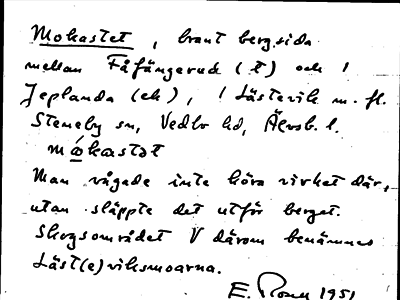 Mokastet, brant bergsida
mellan Fåfängerud (t) och /
Jeplanda (ek), / Lästevik m. fl.
Steneby sn, Vedbo hd, Älvsb. l.
mòkastət
Man vågade inte köra virket där,
utan släppte det utför berget.
Skogsområdet V därom benämnes
Läst(e)viksmoarna.
E. Rosen 1951